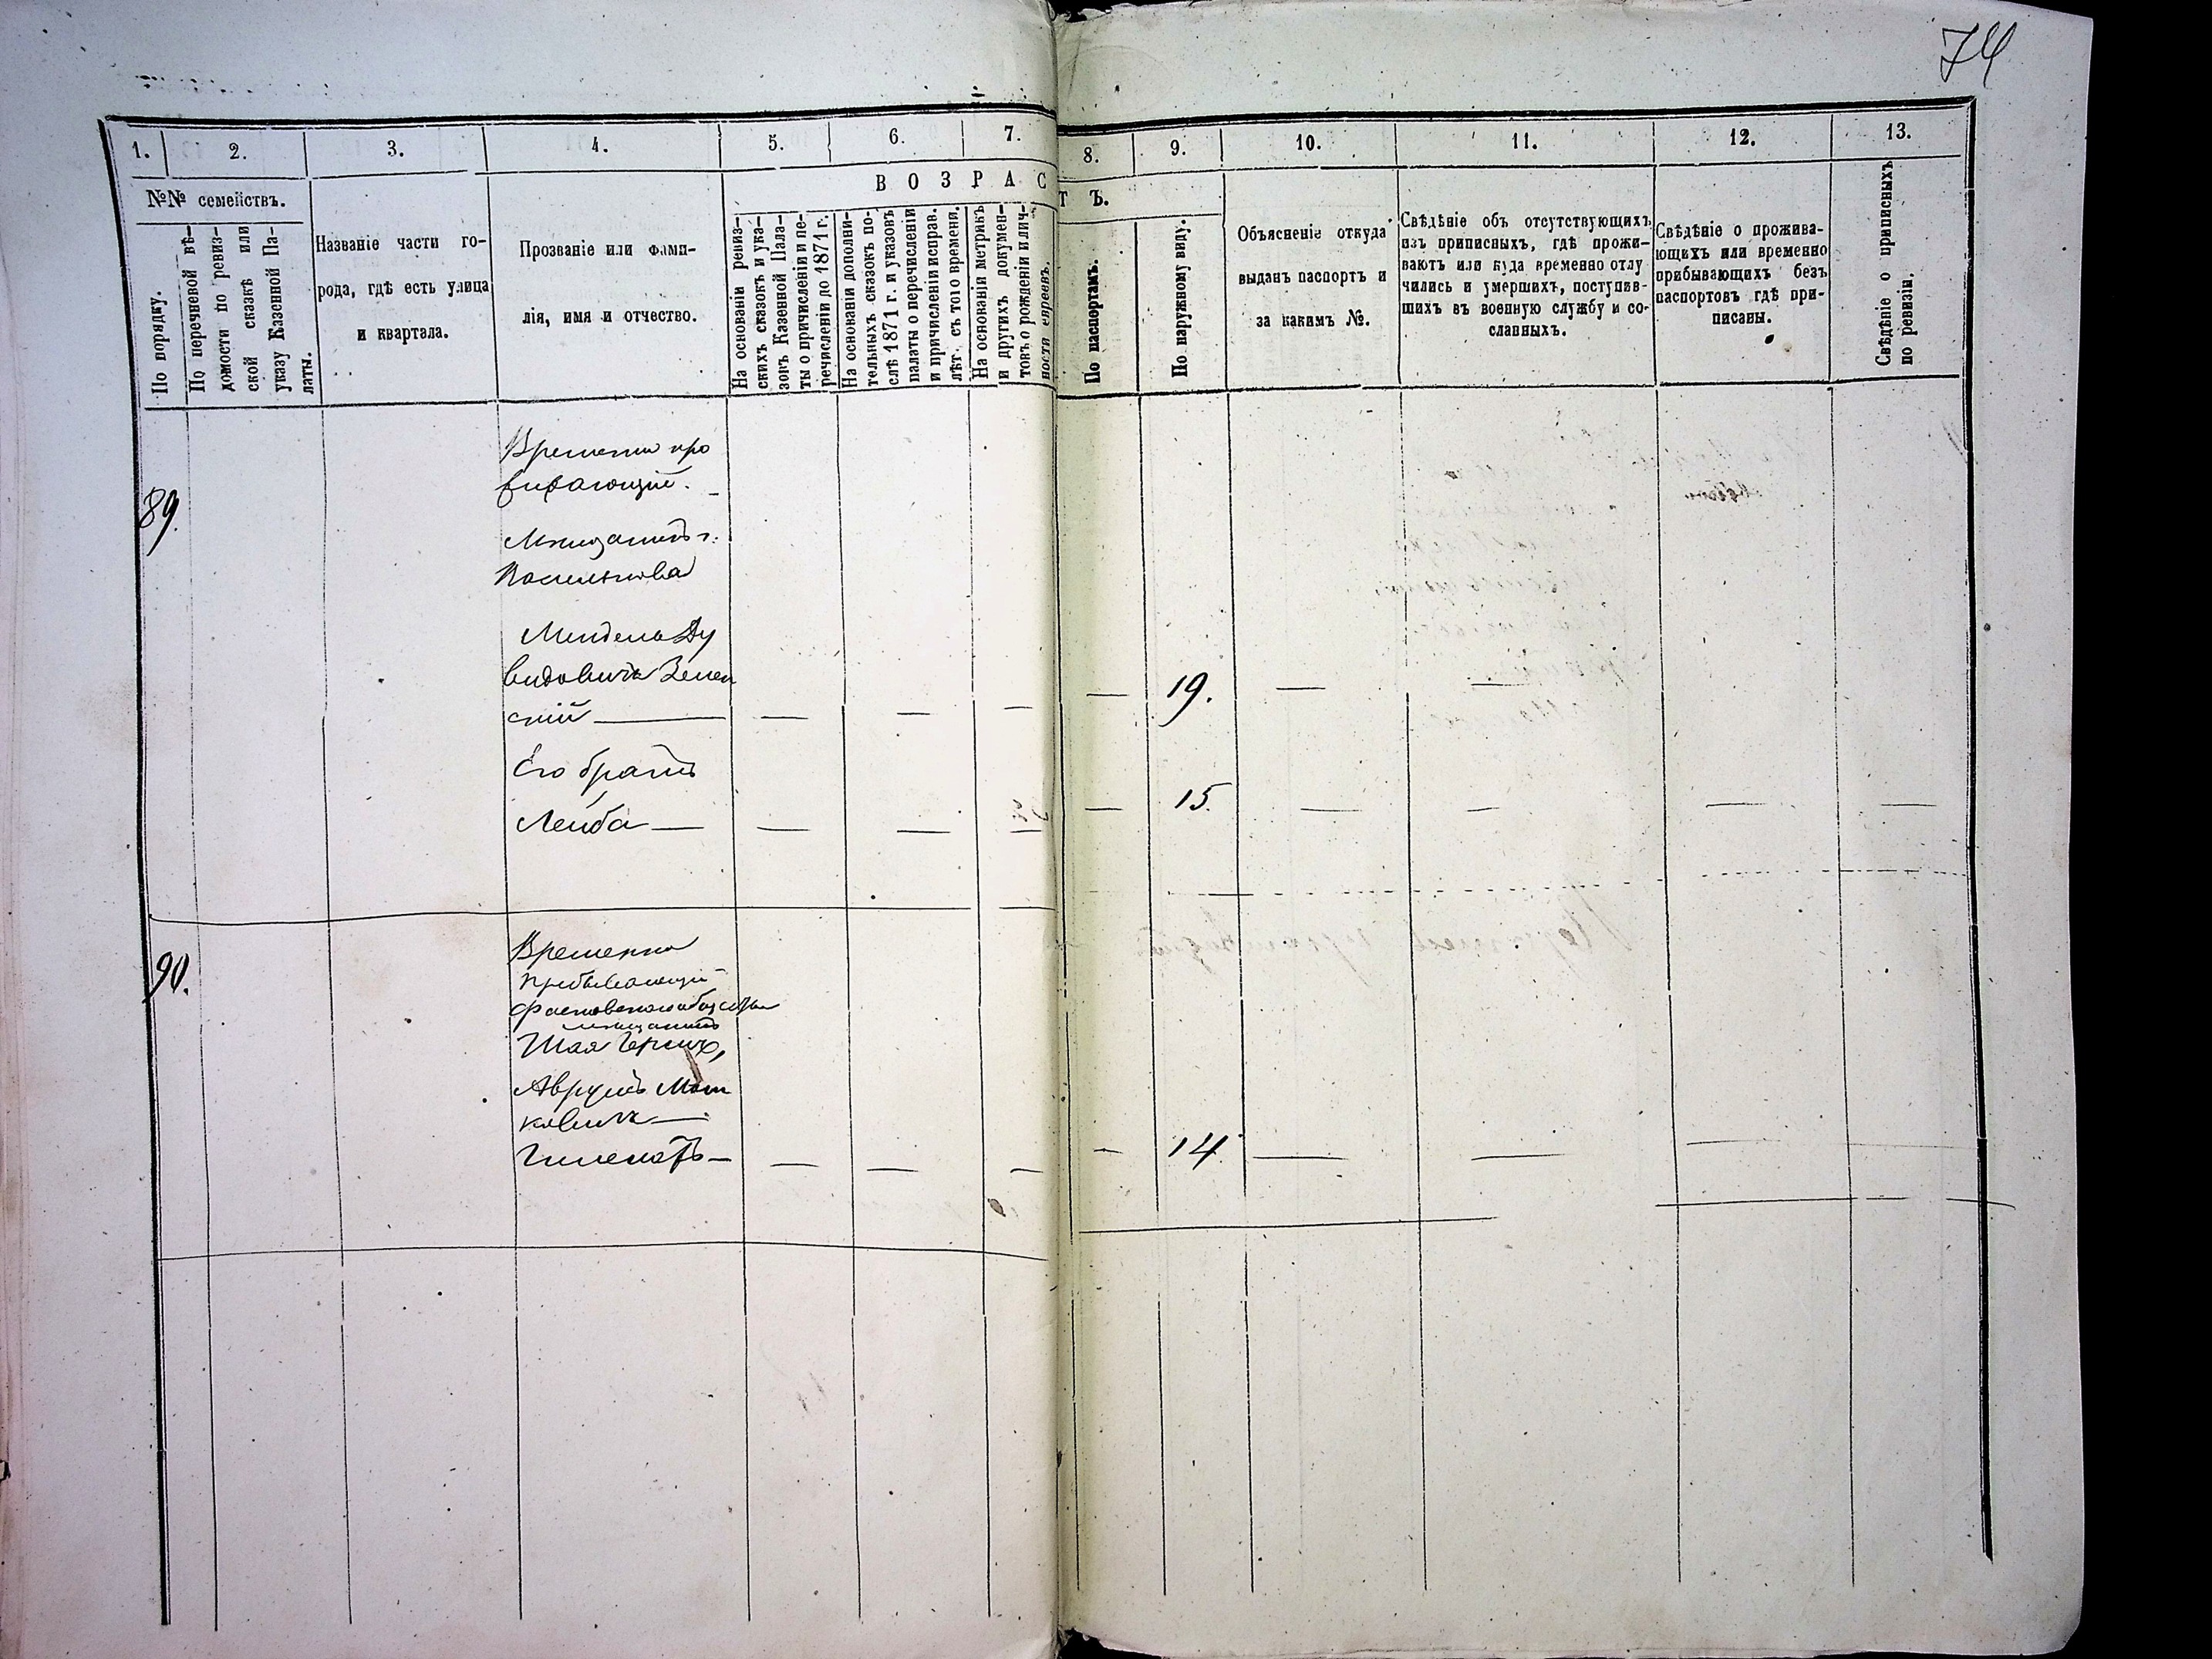 74
1. 2. 3. 4. 5. 6. 7. 8. 9. 10. 11. 12. 13.
№№ семействъ.
В О З Р А С Т Ъ.
По порядку.
По перечневой вѣ-
домости по ревиз-
ской сказкѣ или
указу Казенной Па-
латы.
Названіе части го-
рода, гдѣ есть улица
и квартала.
Прозваніе или фами-
лія, имя и отчество.
На основаніи ревиз-
скихъ сказокъ и ука-
зовъ Казенной Пала-
ты о причисленіи и пе-
речисленіи до 1871 г.
На основаніи дополни-
тельныхъ сказокъ по-
слѣ 1871 г. и указовъ
палаты о перечисленіи
и причисленіи исправ.
лѣт. съ того времени.
На основаніи метрикъ
и другихъ докумен-
товъ о рожденіи и лич-
ности евреевъ.
По паспортамъ.
По наружному виду.
Объясненіе откуда
выданъ паспортъ и
за какимъ №.
Свѣдѣніе объ отсутствующихъ
изъ приписныхъ, гдѣ прожи-
ваютъ или куда временно отлу
чились и умершихъ, поступив-
шихъ въ военную службу и со-
сланныхъ.
Свѣдѣніе о прожива-
ющихъ или временно
прибывающихъ безъ
паспортовъ гдѣ при-
писаны.
Свѣдѣніе о приписныхъ
по ревизіи.
Временно про
89.
Мѣщанинъ г.
Василькова
Мендель Ду
видовичъ Зелен
скій — — — — — 19. — —
Его братъ
Лейба — — — — — 15. — — — —
90. Временно
пребывающій
Фастовскаго общества
мѣщанинъ
Шая Герши,
Аврумъ Мош
ковичъ —
— — — — 14 — — —